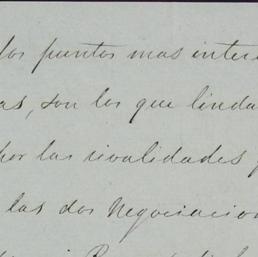 los puntos mas intere
as, son los que linda
por las rivalidades
las dos Negociacion